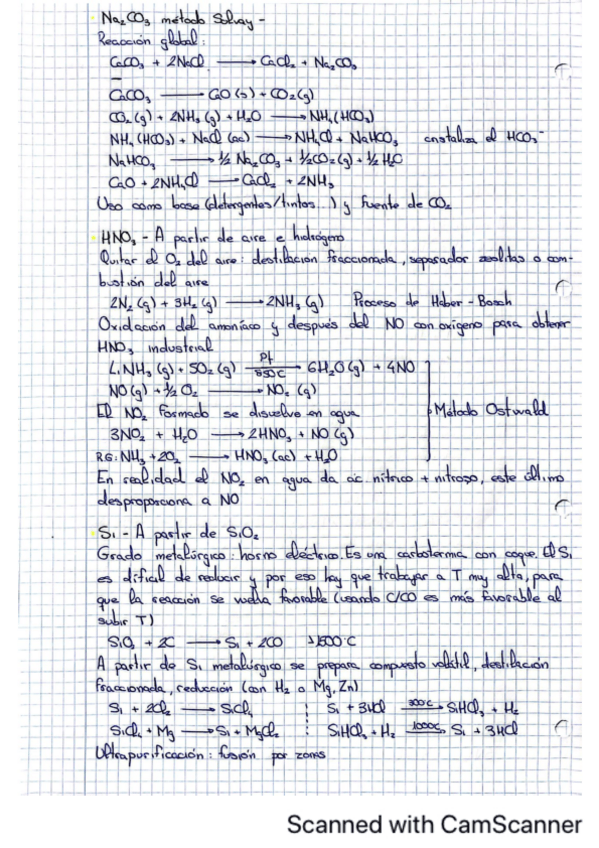 Na₂CO₃ método Solvay -
Reacción global:
CaCO₃ + 2NaCl ⟶ CaCl₂ + Na₂CO₃
CaCO₃ ⟶ CaO (s) + CO₂ (g)
CO₂ (g) + 2NH₃ (g) + H₂O ⟶ NH₄(HCO₃)
NH₄(HCO₃) + NaCl (ac) ⟶ NH₄Cl + NaHCO₃ cristaliza el HCO₃⁻
NaHCO₃ ⟶ ½ Na₂CO₃ + ½CO₂(g) + ½ H₂O
CaO + 2NH₄Cl ⟶ CaCl₂ + 2NH₃
Uso como base (detergentes/tintos...) y fuente de CO₂
HNO₃ - A partir de aire e hidrógeno
Quitar el O₂ del aire: destilación fraccionada, separador zeolitas o com-
bustión del aire
2N₂ (g) + 3H₂ (g) ⟶ 2NH₃ (g) Proceso de Haber - Bosch
Oxidación del amoníaco y después del NO con oxígeno para obtener
HNO₃ industrial
4NH₃ (g) + 5O₂ (g) ⟶ 6H₂O (g) + 4NO Pt 850C
NO (g) + ½ O₂ ⟶ NO₂ (g)
El NO₂ formado se disuelve en agua Método Ostwald
3NO₂ + H₂O ⟶ 2HNO₃ + NO (g)
RG: NH₃ + 2O₂ ⟶ HNO₃ (ac) + H₂O
En realidad el NO₂ en agua da ác. nítrico + nitroso, este último
desproporciona a NO
Si - A partir de SiO₂
Grado metalúrgico: horno eléctrico. Es una carbotermia con coque. El Si
es difícil de reducir y por eso hay que trabajar a T muy alta, para
que la reacción se vuelva favorable (usando C/CO es más favorable al
subir T)
SiO₂ + 2C ⟶ Si + 2CO >1500°C
A partir de Si metalúrgico se prepara compuesto volátil, destilación
fraccionada, reducción (con H₂ o Mg, Zn)
Si + 2Cl₂ ⟶ SiCl₄ Si + 3HCl ⟶ SiHCl₃ + H₂ 300C
SiCl₄ + Mg ⟶ Si + MgCl₂ SiHCl₃ + H₂ ⟶ Si + 3HCl 1000C
Ultrapurificación: fusión por zonas
Scanned with CamScanner